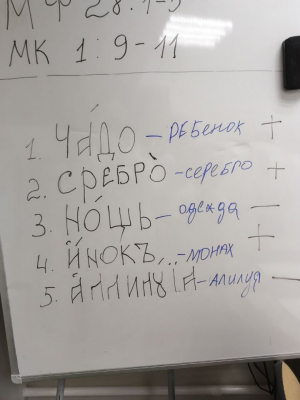 МФ 28:1-5
МК 1:9-11
1. ЧА́ДО – РЕБЕНОК +
2. СРЕБРО̀ – СЕРЕБРО +
3. НО́ЩЬ – ОДЕЖДА –
4. И҆́НОКЪ... – МОНАХ +
5. А҆ЛЛИЛꙊІА – АЛИЛУЯ –